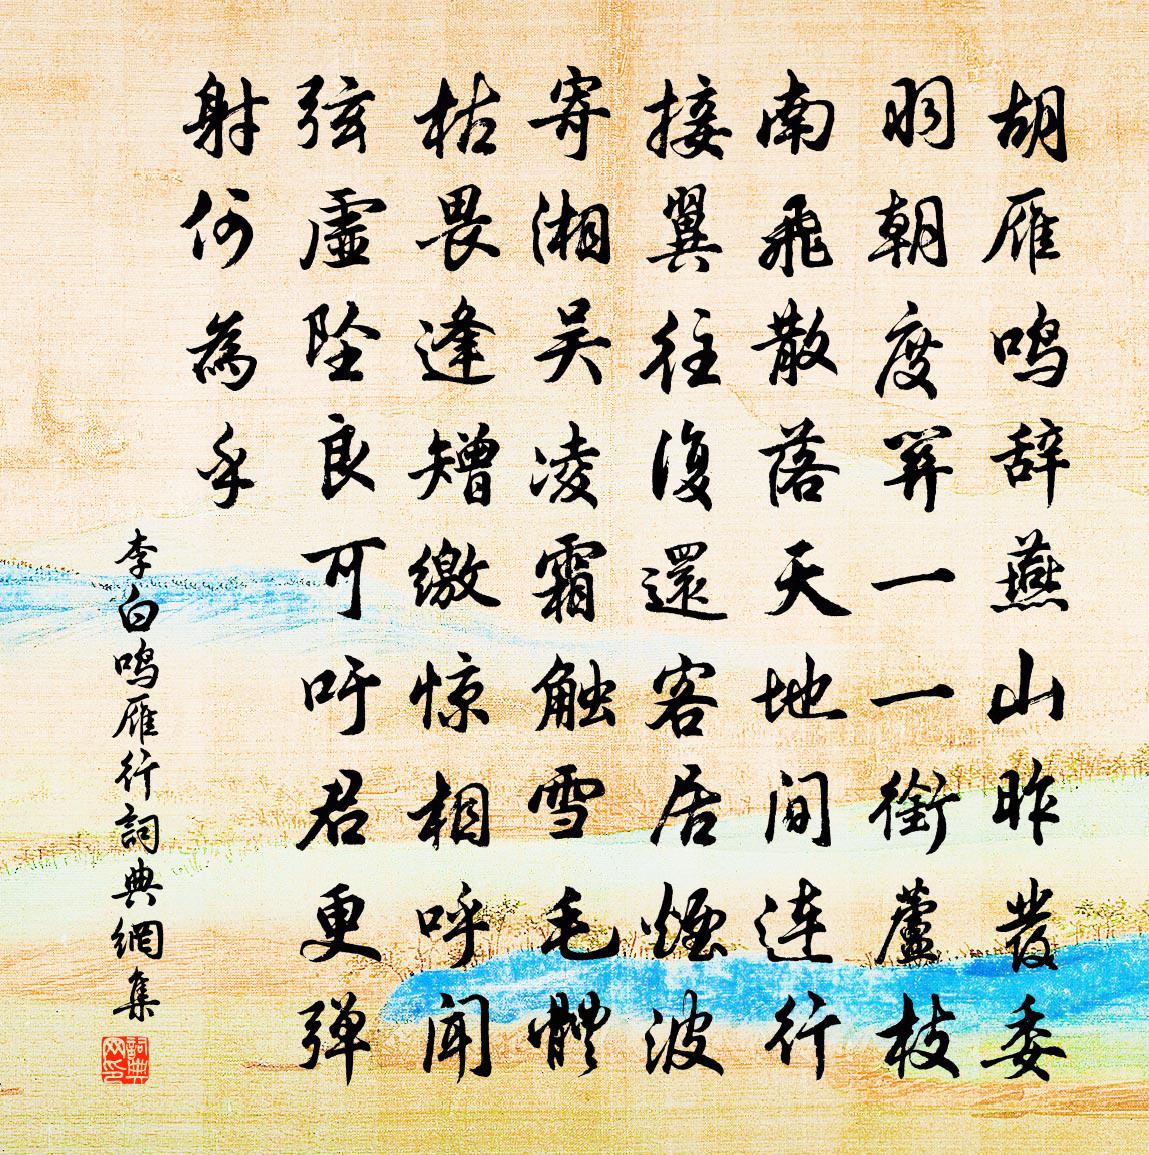 胡雁鸣辞燕山昨發委
羽朝度関一一銜蘆枝
南飛散落天地间连行
接翼往復還客居煙波
寄湘吴凌霜触雪毛體
枯畏逢矰缴惊相呼闻
弦虚坠良可吁君更弹
射何為乎
李白鸣雁行詞典網集
詞典网印